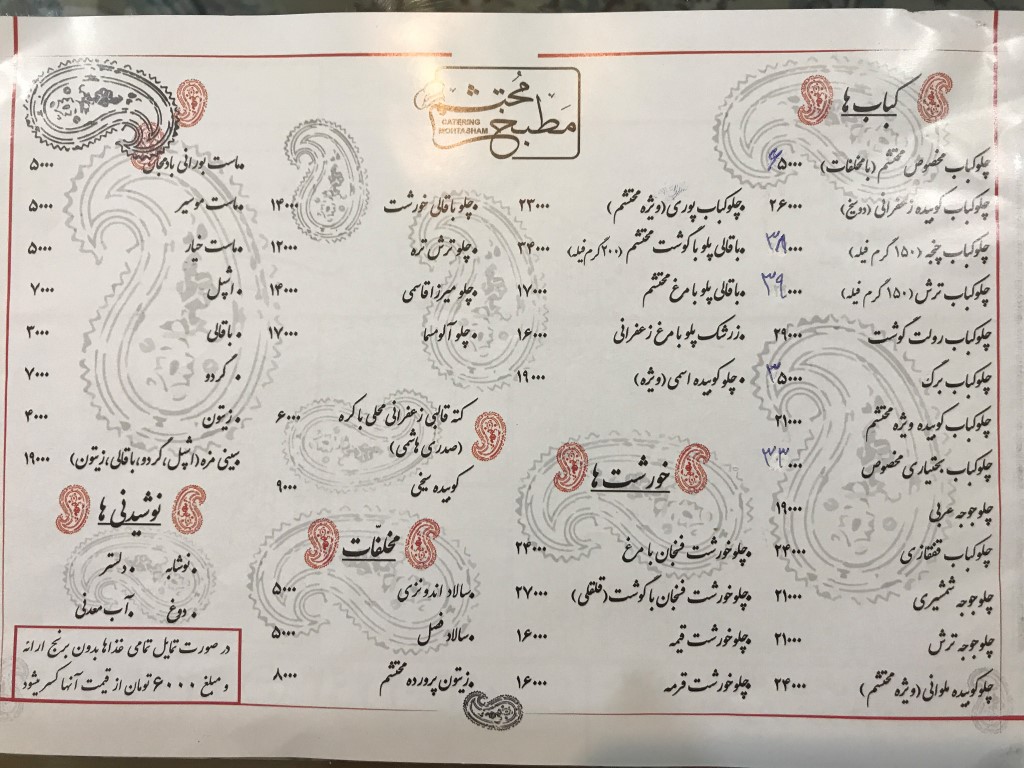 مطبخ محتشم
CATERING
MOHTASHAM
کباب ها
چلوکباب مخصوص محتشم (با مخلفات) ۶۵۰۰۰
چلوکباب کوبیده زعفرانی (دو سیخ) ۲۶۰۰۰
چلوکباب چنجه (۱۵۰ گرم فیله) ۳۸۰۰۰
چلوکباب ترش (۱۵۰ گرم فیله) ۳۹۰۰۰
چلوکباب رولت گوشت ۲۹۰۰۰
چلوکباب برگ ۳۵۰۰۰
چلوکباب کوبیده ویژه محتشم ۲۱۰۰۰
چلوکباب بختیاری مخصوص ۳۳۰۰۰
چلوجوجه عربی ۱۹۰۰۰
چلوکباب قفقازی ۲۴۰۰۰
چلوجوجه شمشیری ۲۱۰۰۰
چلوجوجه ترش ۲۱۰۰۰
چلوکوبیده ملوانی (ویژه محتشم) ۲۴۰۰۰
• چلوکباب پوری (ویژه محتشم) ۲۳۰۰۰
• باقالی پلو با گوشت محتشم (۲۰۰ گرم فیله) ۳۴۰۰۰
• باقالی پلو با مرغ محتشم ۱۷۰۰۰
• زرشک پلو با مرغ زعفرانی ۱۶۰۰۰
• چلوکوبیده اسمی (ویژه) ۱۹۰۰۰
خورشت ها
چلوخورشت فنجان با مرغ ۲۴۰۰۰
چلوخورشت فنجان با گوشت (قلقلی) ۲۷۰۰۰
چلوخورشت قیمه ۱۶۰۰۰
چلوخورشت قرمه ۱۶۰۰۰
• چلو باقالی خورشت ۱۴۰۰۰
• چلو ترش تره ۱۲۰۰۰
• چلو میرزا قاسمی ۱۴۰۰۰
• چلو آلو مسما ۱۷۰۰۰
کته قالبی زعفرانی محلی با کره ۶۰۰۰
(صدری هاشمی)
کوبیده سیخی ۹۰۰۰
مخلفات
• سالاد اندونزی ۵۰۰۰
• سالاد فصل ۵۰۰۰
• زیتون پرورده محتشم ۸۰۰۰
• ماست بورانی بادمجان ۵۰۰۰
• ماست موسیر ۵۰۰۰
• ماست خیار ۵۰۰۰
• اشپل ۷۰۰۰
• باقالی ۳۰۰۰
• گردو ۷۰۰۰
• زیتون ۴۰۰۰
• سینی مزه (اشپل، گردو، باقالی، زیتون) ۱۹۰۰۰
نوشیدنی ها
• نوشابه • دلستر
• دوغ • آب معدنی
در صورت تمایل تمامی غذاها بدون برنج ارائه
و مبلغ ۶۰۰۰ تومان از قیمت آنها کسر میشود